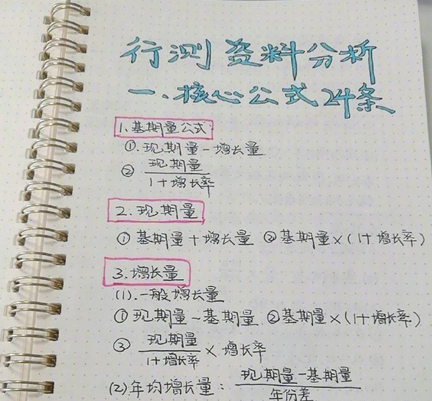 行测资料分析
一.核心公式24条
1.基期量公式
①.现期量-增长量
② 现期量
1+增长率
2.现期量
①基期量+增长量 ②基期量×(1+增长率)
3.增长量
(1).一般增长量
①现期量-基期量 ②基期量×(1+增长率)
③ 现期量/1+增长率 × 增长率
(2)年均增长量: 现期量-基期量/年份差